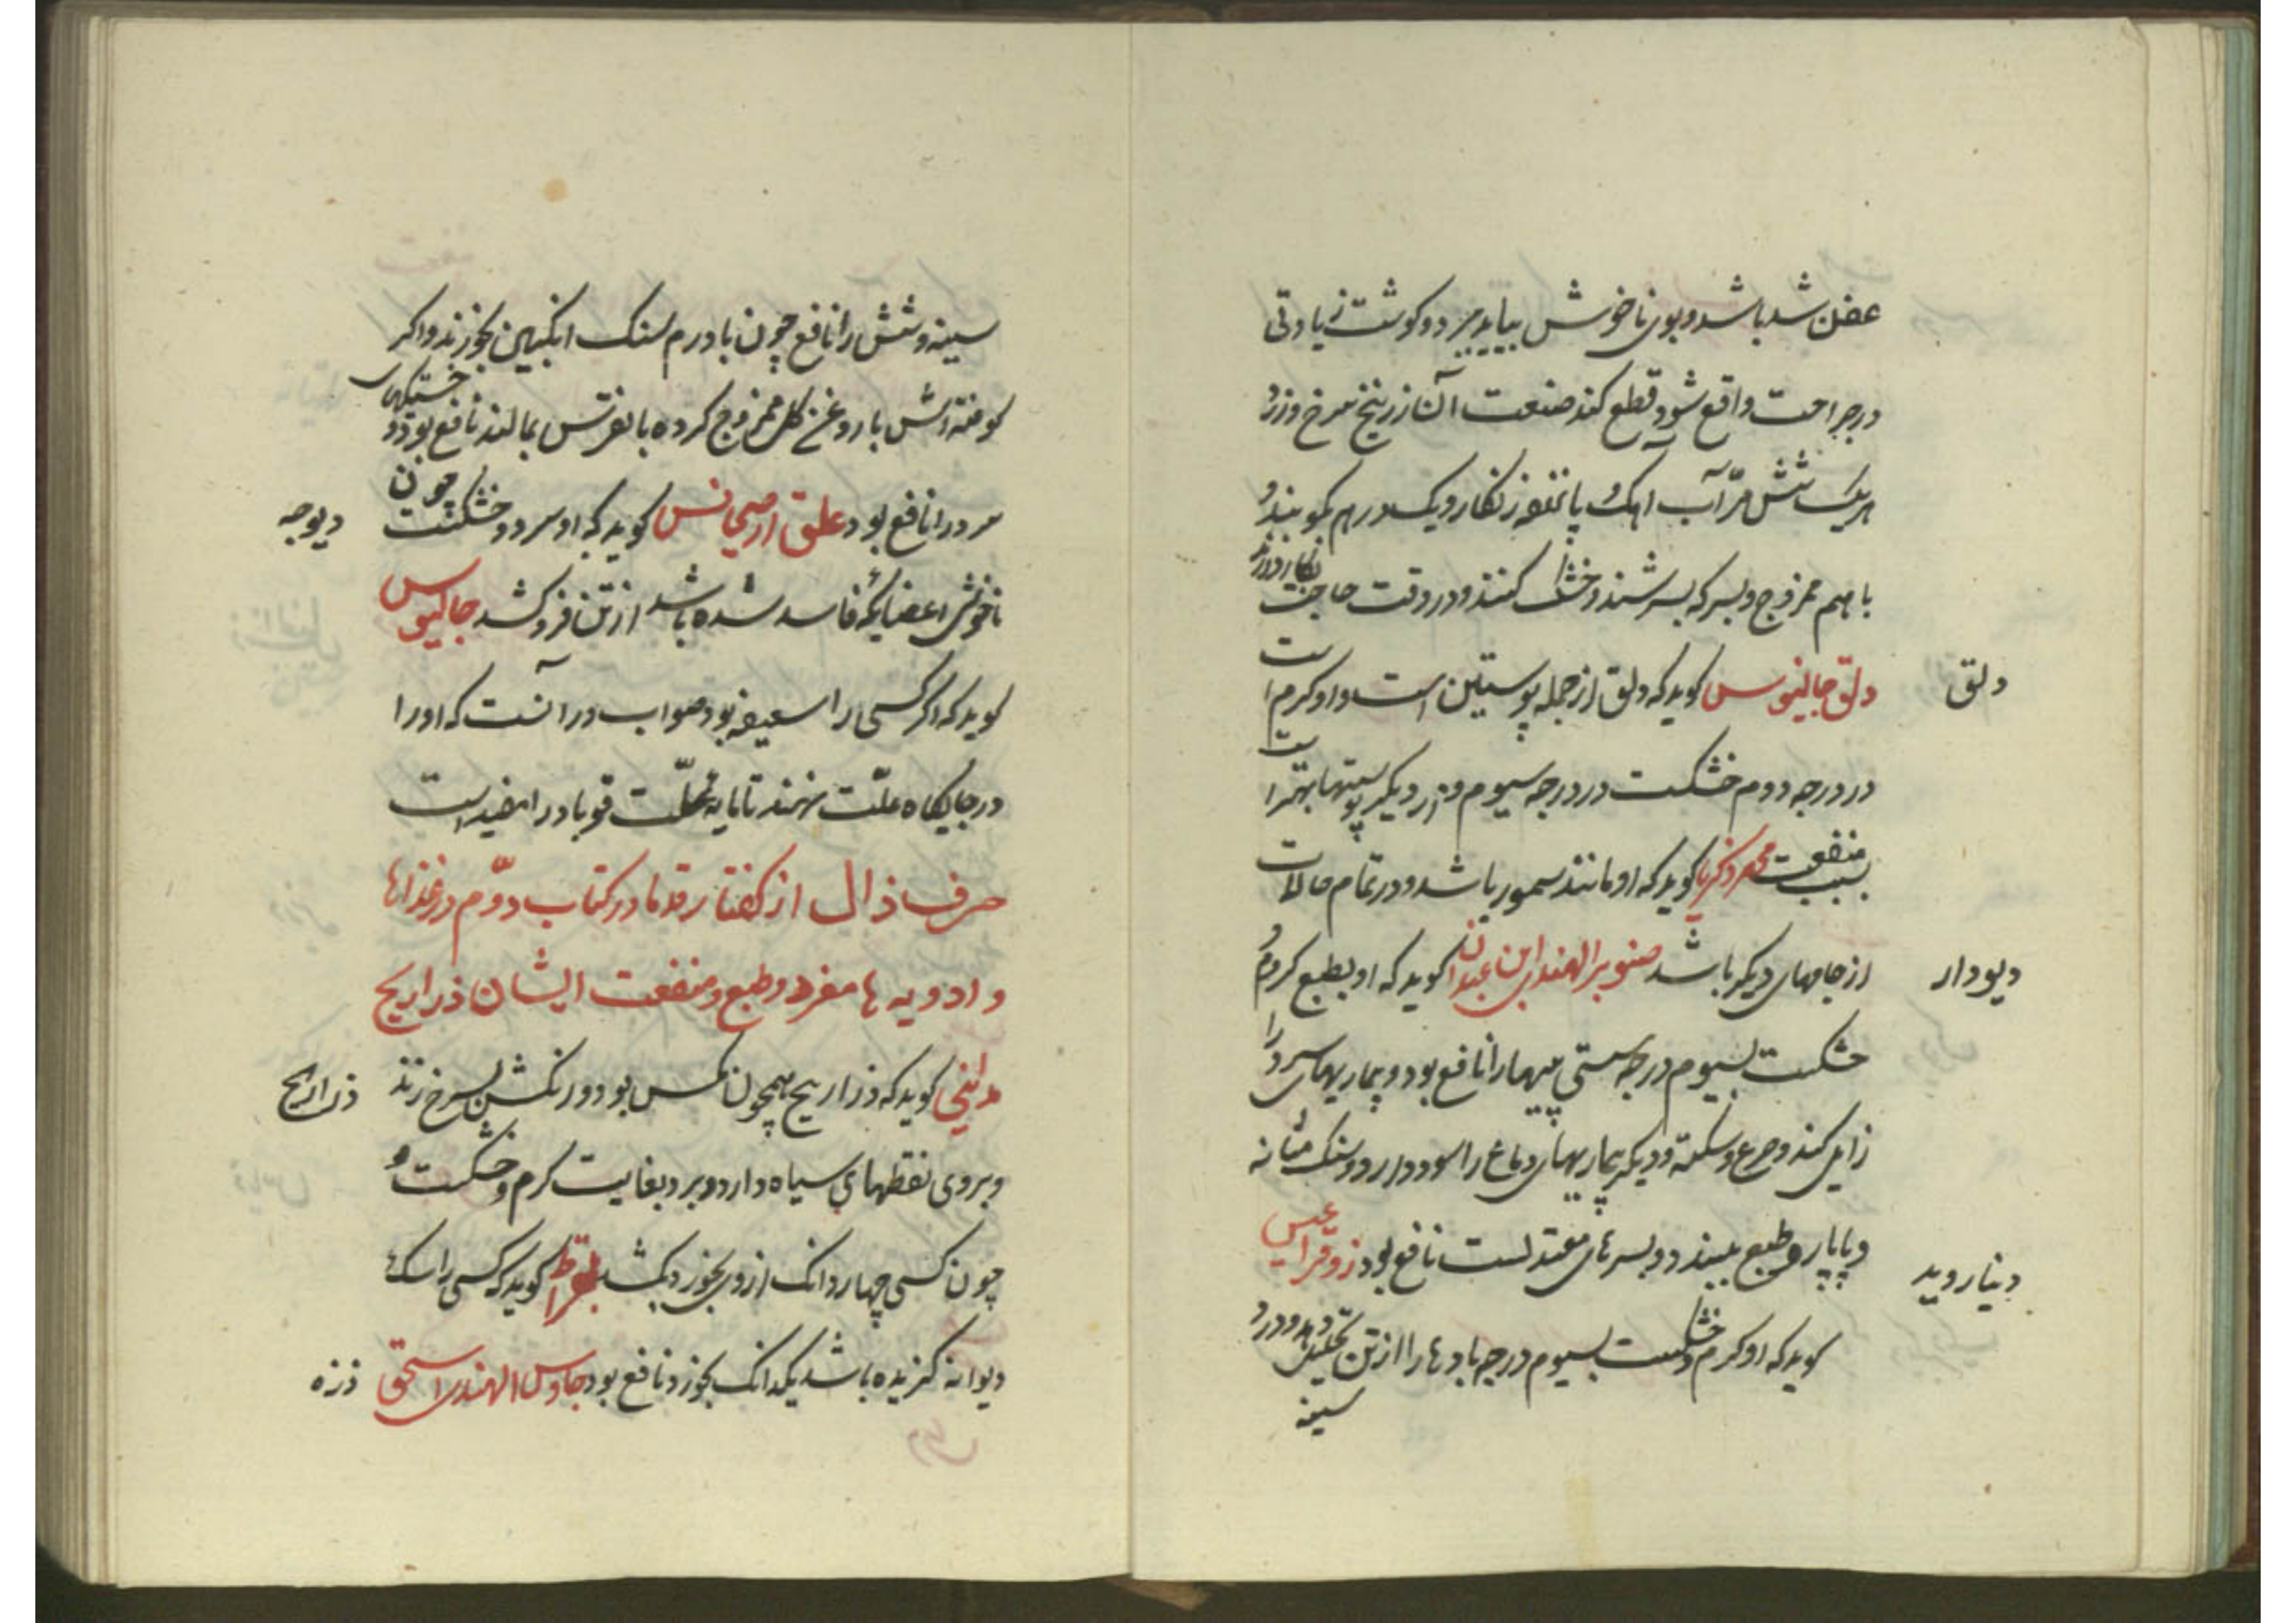 عفن شد باشد و بوی ناخوش بیاید ببرد و کوشت زیادتی
در جراحت واقع شود قطع کند صنعت آن زرنیخ سرخ و زرد
هریک شش مرّ آب اهک و پانزده زنکار و یکدرهم بکوبند و
باهم ممزوج و بسرکه بسرشند و خشک کنند و در وقت حاجت بکار دارند
دلق جالینوس کوید که دلق از جمله پوستین است و او کرم است
دلق
در درجه دوم خشکست در درجه سیوم و از دیکر پوستها بهتر است
بسبب منفعت محمد زکریا کوید که او مانند سمور باشد و در تمام حالات
از جامهای دیکر باشد صنوبر الهندی ابن عبدان کوید که او بطبع کرم و
دیودار
خشکست بسیوم درجه سستی پیهارا نافع بود و بیماریهای سرد را
زایل کند و صرع و سکته و دیکر بیماریهای دماغ را سود دارد و سنک مثانه
و پاپاره و طبع ببندد و بسرهای مقعد نشست نافع بود زوقراطیس
دیناروید
کوید که او کرم و خشکست بسیوم درجه بادهارا از تن تحلیل دهد و درد
سینه
سینه و شش را نافع چون با درم سنک انکبین بخورند و اکر
کوفته‌اش با روغن کل ممزوج کرده با نقرس بمالند نافع بود و خستکهای
سرد را نافع بود علق ارجیانس کوید که او سرد و خشکست چون
دیوچه
ناخوشی اعضایکه فاسد شده باشد از تن فرو کشد جالینوس
کوید که اکر کسی را سعیفه بود صواب در آنست که او را
در جایکاه علّت نهند تا مایه علّت قوبا در امفید است
حرف ذال از کفتار قدما در کتاب دوّم در غذاها
و ادویه ها مفرد و طبع و منفعت ایشان ذراریح
بدایغی کوید که ذراریح همچون مکس بود و رنکش بسرخ زند
ذراریح
و بروی نقطهای سیاه دارد و برد بغایت کرم و خشکست و
چون کسی چهار دانک ازوی بخورد بکشد بقراط کوید که کسی را سک
دیوانه کزیده باشد یکدانک بخورد نافع بود جاورس الهندی اسحق
ذره